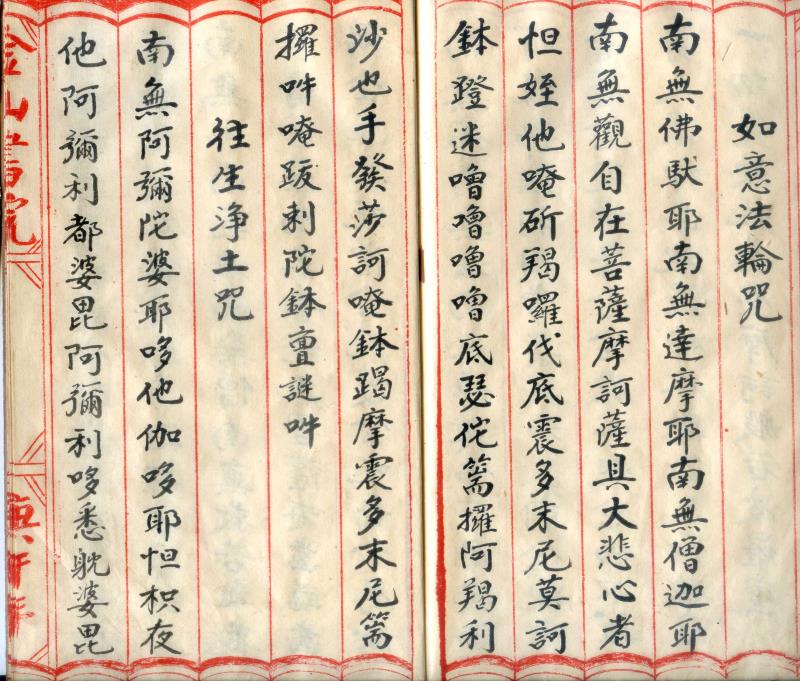 如意法輪咒
南無佛馱耶南無達摩耶南無僧迦耶
南無觀自在菩薩摩訶薩具大悲心者
怛姪他唵斫羯囉伐底震多末尼莫訶
鉢蹬迷嚕嚕嚕嚕底瑟侘篅攞阿羯利
沙也手發莎訶唵鉢蹋摩震多末尼篅
攞吽唵跋剌陀鉢亶謎吽
往生淨土咒
南無阿彌陀婆耶哆他伽哆耶怛枳夜
他阿彌利都婆毘阿彌利哆悉躭婆毘
金山書院